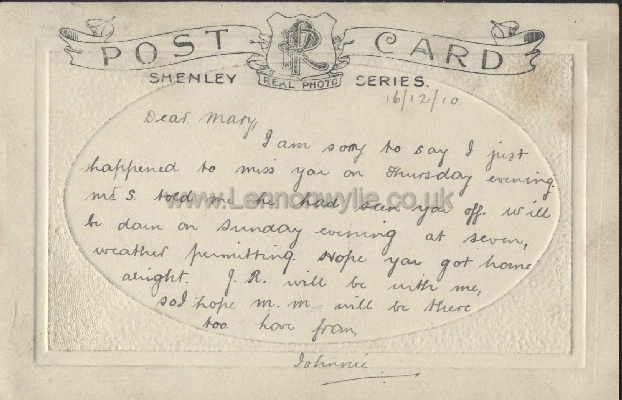 POST CARD
SHENLEY SERIES.
REAL PHOTO
16/12/10
Dear Mary,
I am sorry to say I just
happened to miss you on Thursday evening.
Mr S. told me he had seen you off. Will
www.Lennonwylie.co.uk
be down on Sunday evening at seven,
weather permitting. Hope you got home
alright. J. R. will be with me,
so I hope M. M. will be there
too love from,
Johnnie